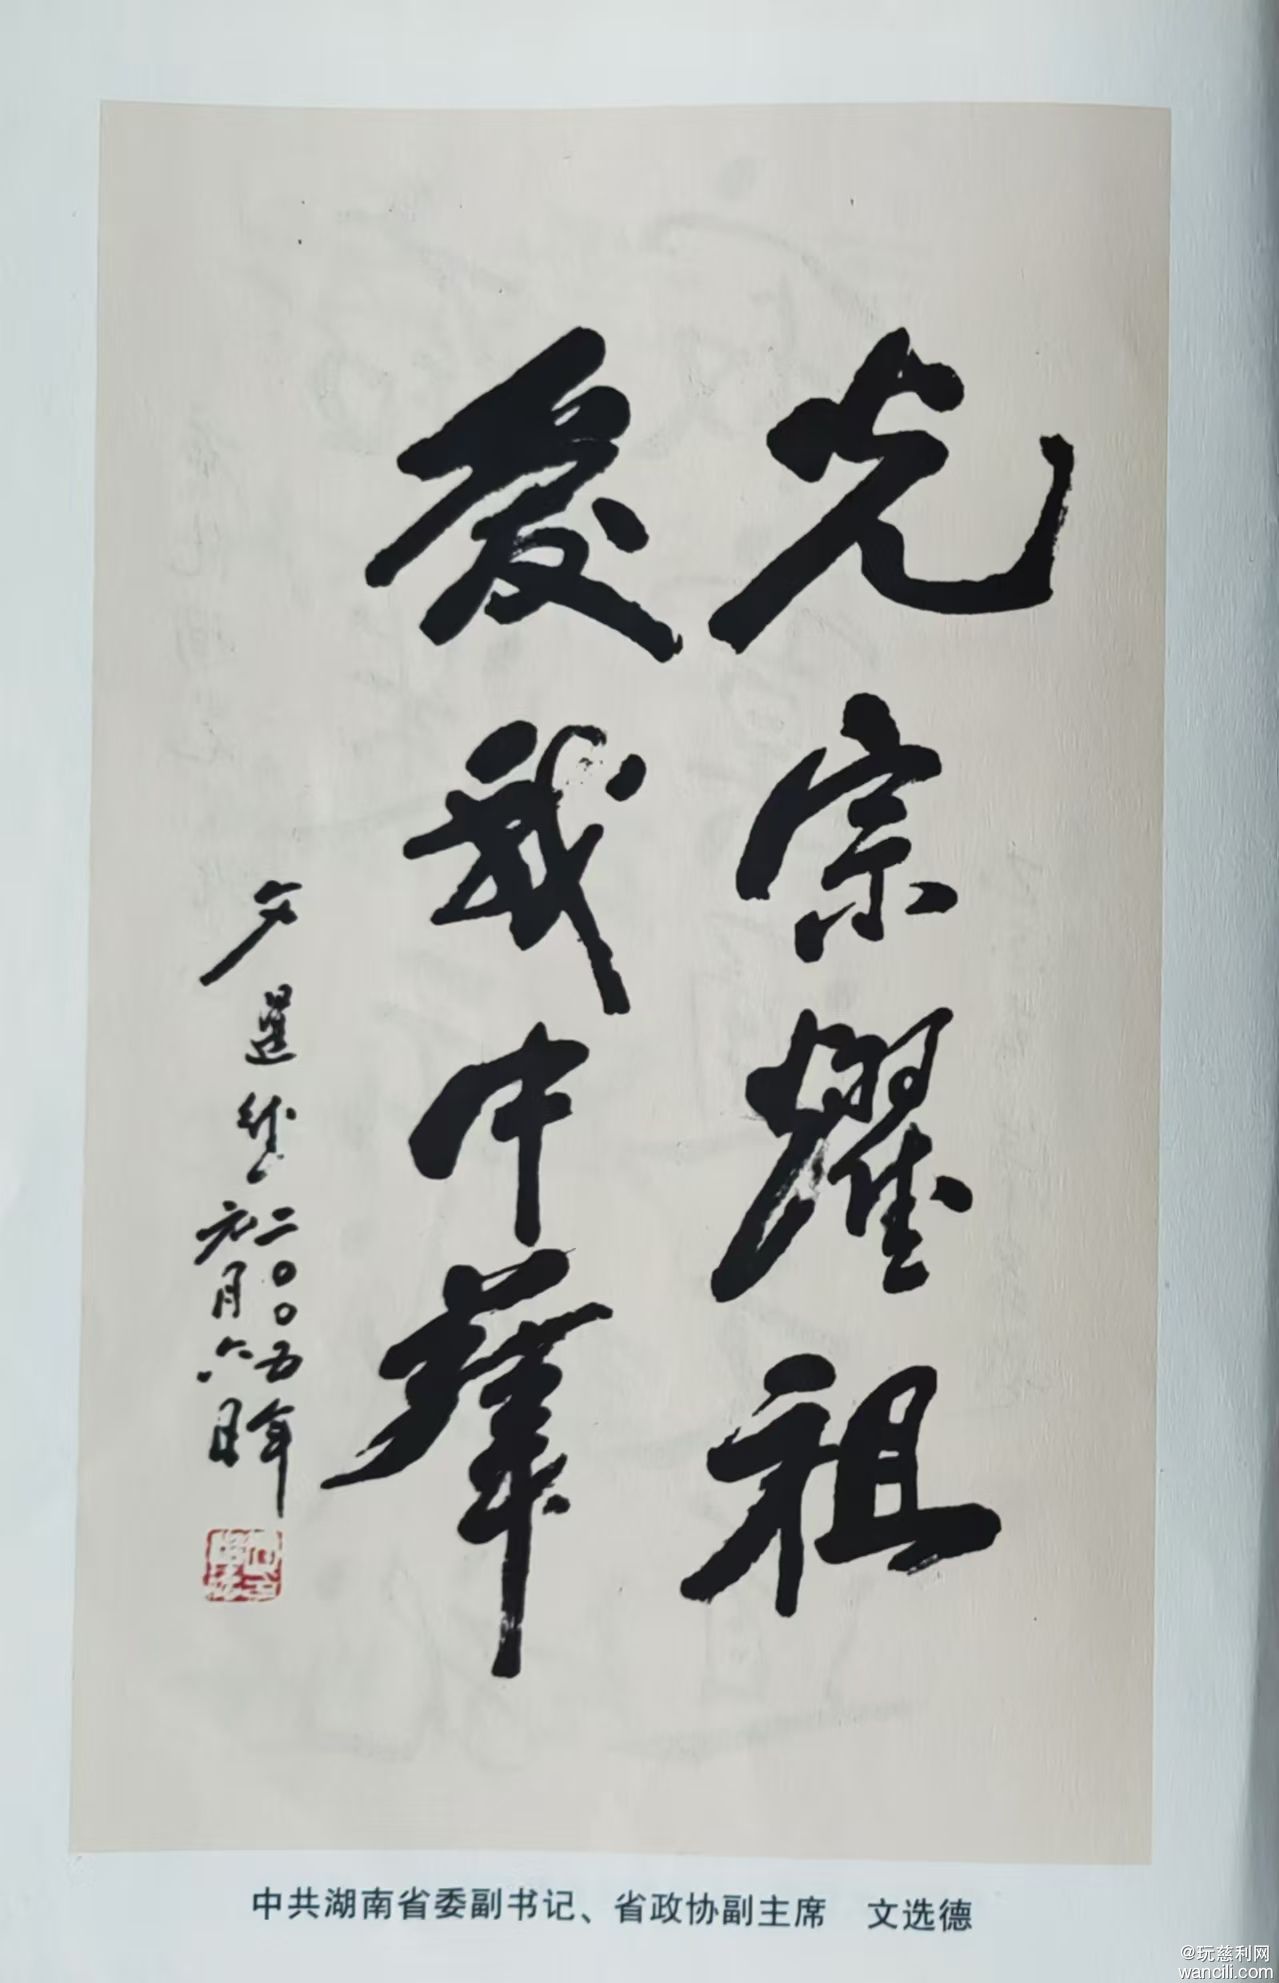 光宗耀祖
爱我中华
文選德
二〇〇五年
元月六日
中共湖南省委副书记、省政协副主席 文选德
@玩慈利网
wancili.com